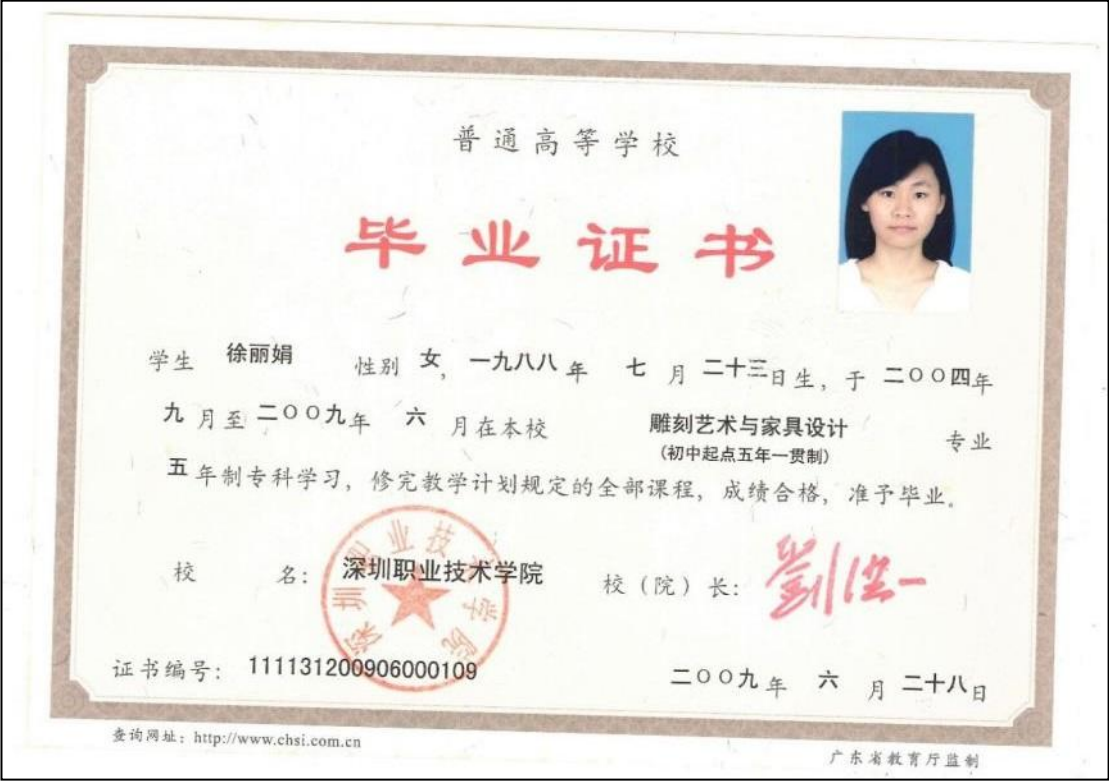 普通高等学校
毕业证书
学生 徐丽娟 性别 女, 一九八八年 七月 二十三日生, 于 二〇〇四年
九月至二〇〇九年 六月在本校 雕刻艺术与家具设计 专业
(初中起点五年一贯制)
五年制专科学习, 修完教学计划规定的全部课程, 成绩合格, 准予毕业。
校名: 深圳职业技术学院 校(院)长: 劉洪一
深圳职业技术学院
证书编号: 111131200906000109 二〇〇九年 六月 二十八日
查询网址: http://www.chsi.com.cn
广东省教育厅监制